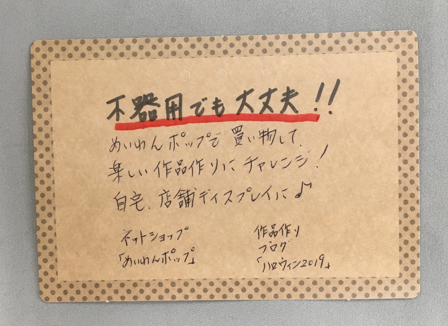 不器用でも大丈夫!!
めいわんポップで買い物して、
楽しい作品作りにチャレンジ!
自宅、店舗ディスプレイに♪
ネットショップ
「めいわんポップ」
作品作り
ブログ
「ハロウィン2019」